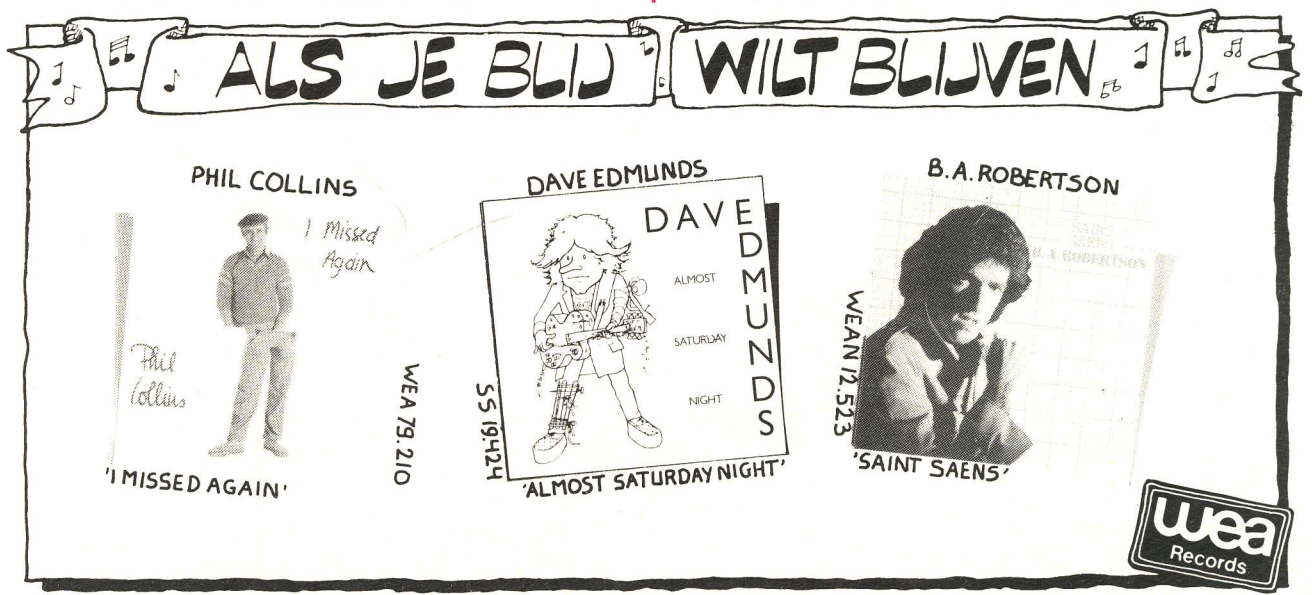 ALS JE BLIJ WILT BLIJVEN
PHIL COLLINS
I Missed
Again
Phil
Collins
WEA 79.210
'I MISSED AGAIN'
DAVE EDMUNDS
DAVE
EDMUNDS
ALMOST
SATURDAY
NIGHT
SS 19.424
'ALMOST SATURDAY NIGHT'
B.A. ROBERTSON
SAINT
SAENS
B.A ROBERTSON
WEAN 12.523
'SAINT SAENS'
wea
Records